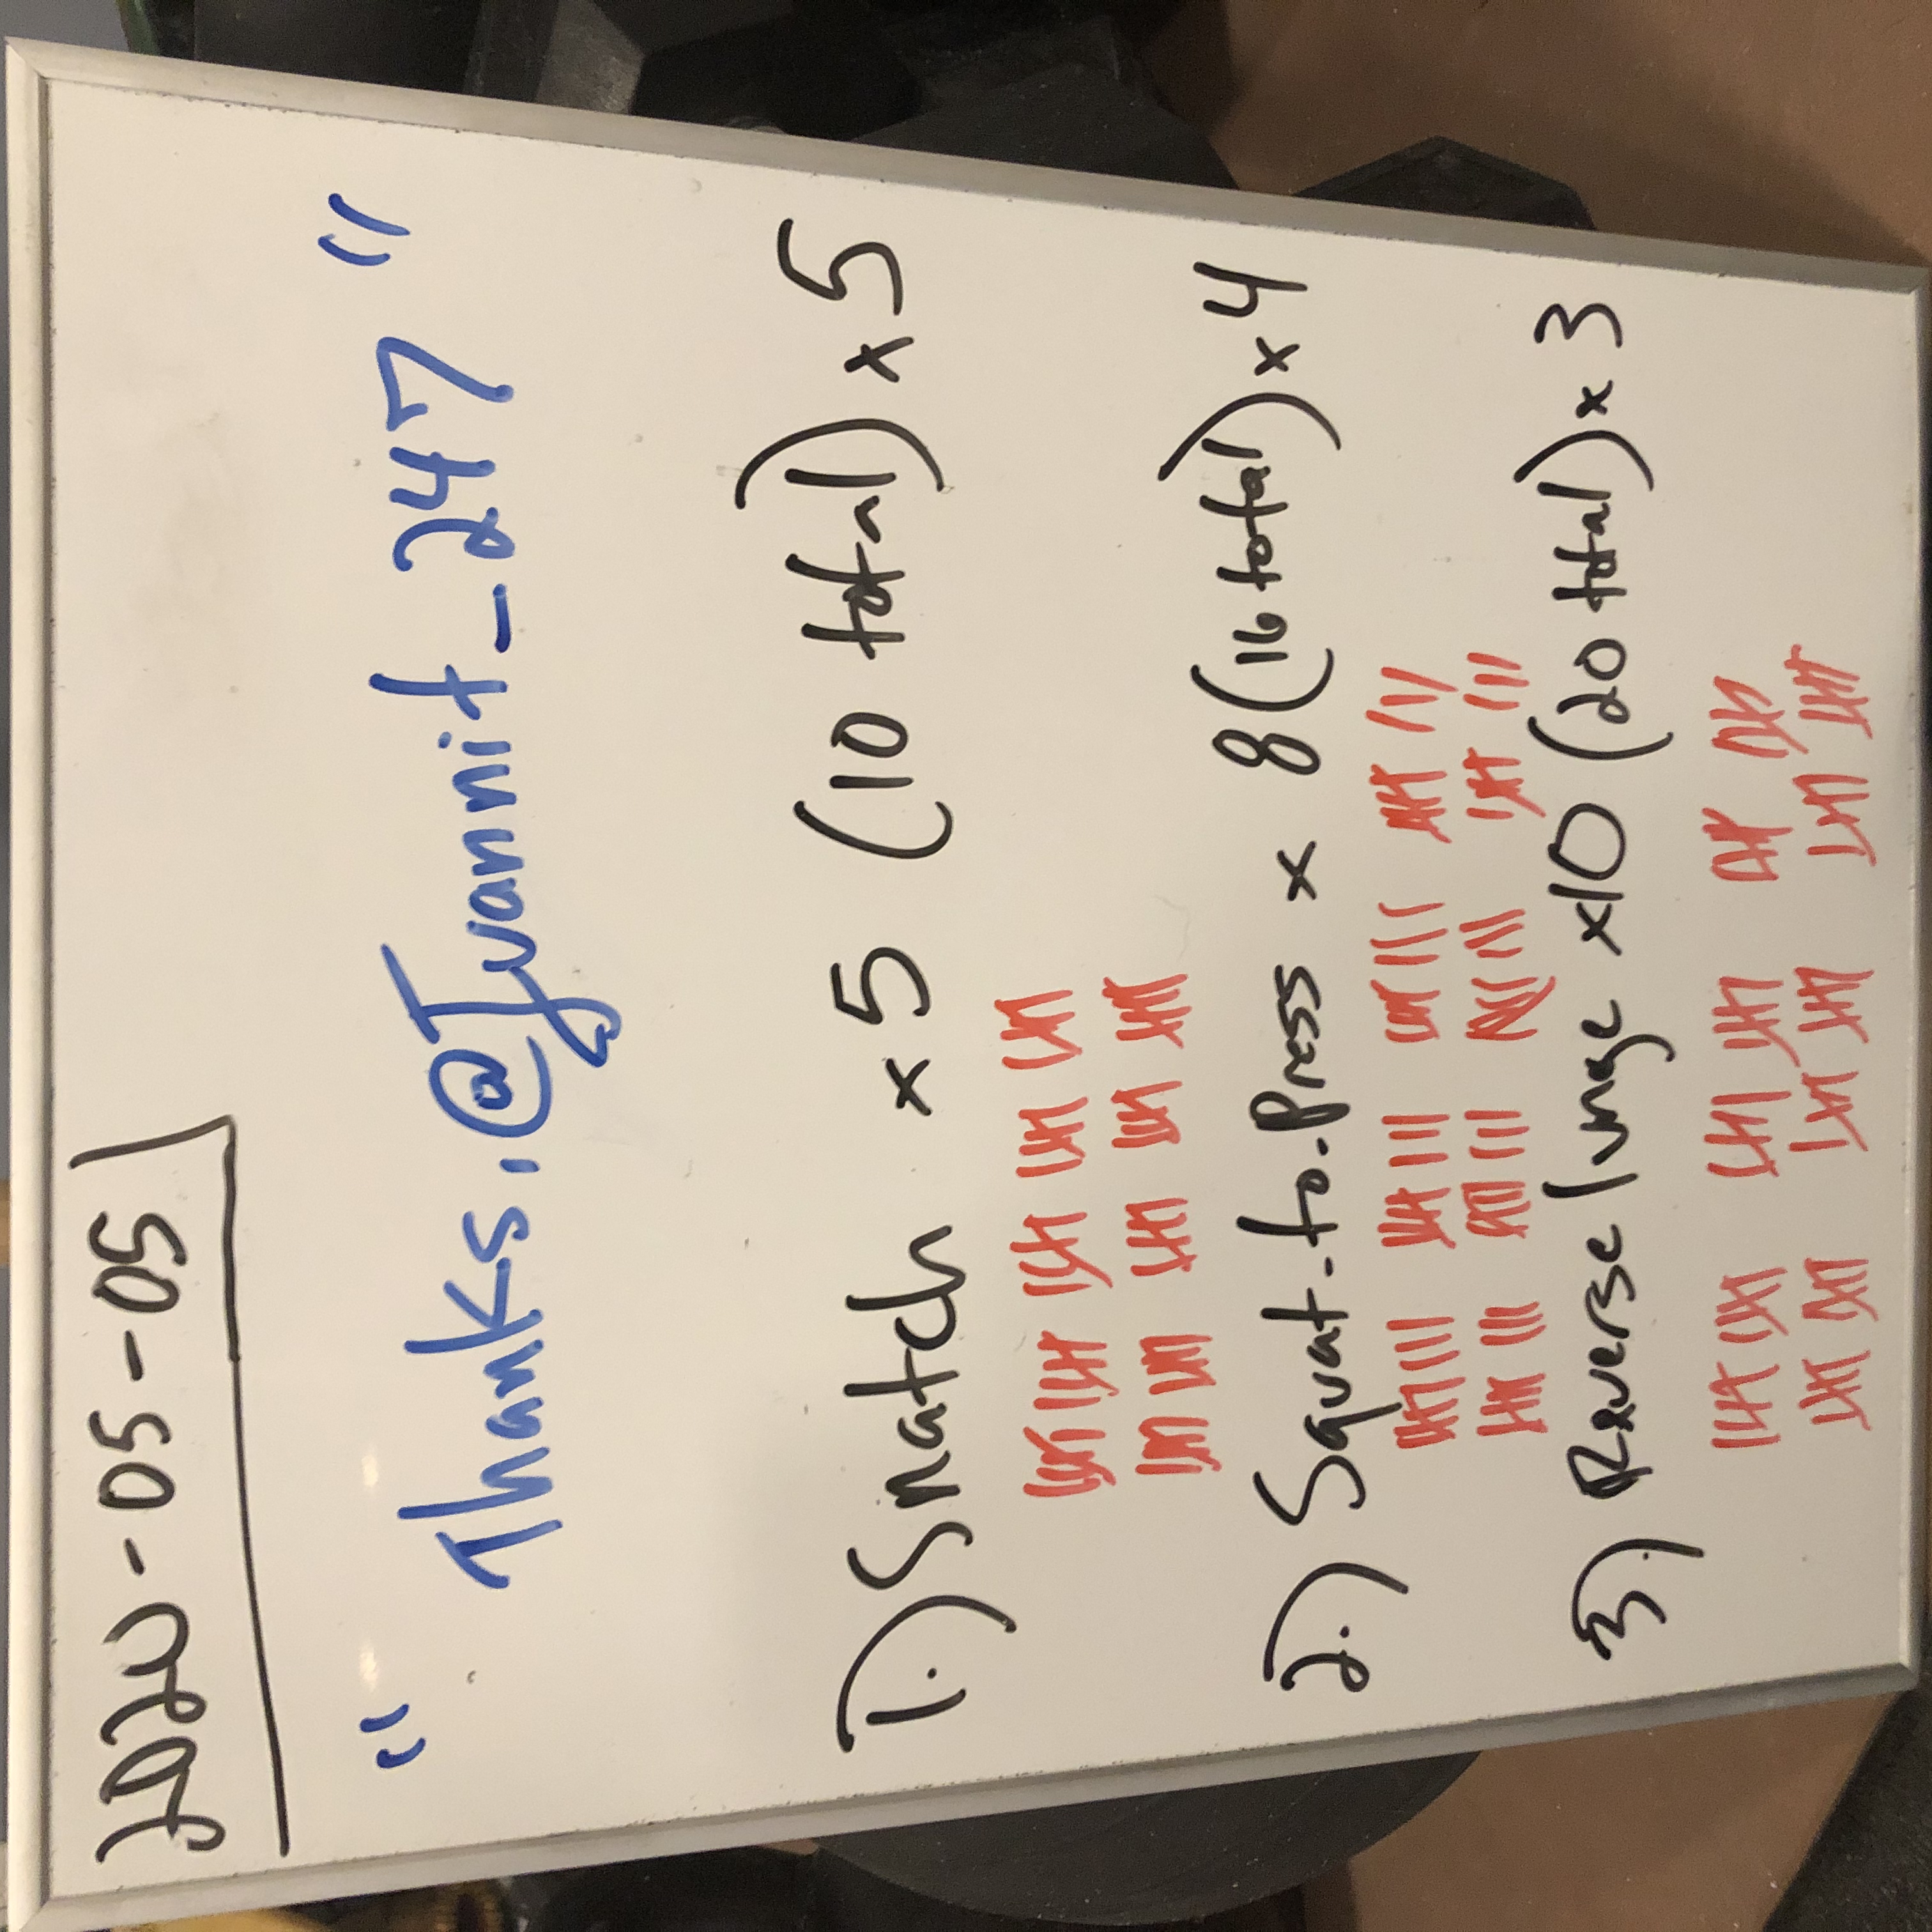 2020-05-05
"Thanks, @Ivannit_247"
1.) Snatch x5 (10 total) x5
2.) Squat-to-Press x 8 (16 total) x 4
3.) Reverse lunge x10 (20 total) x 3